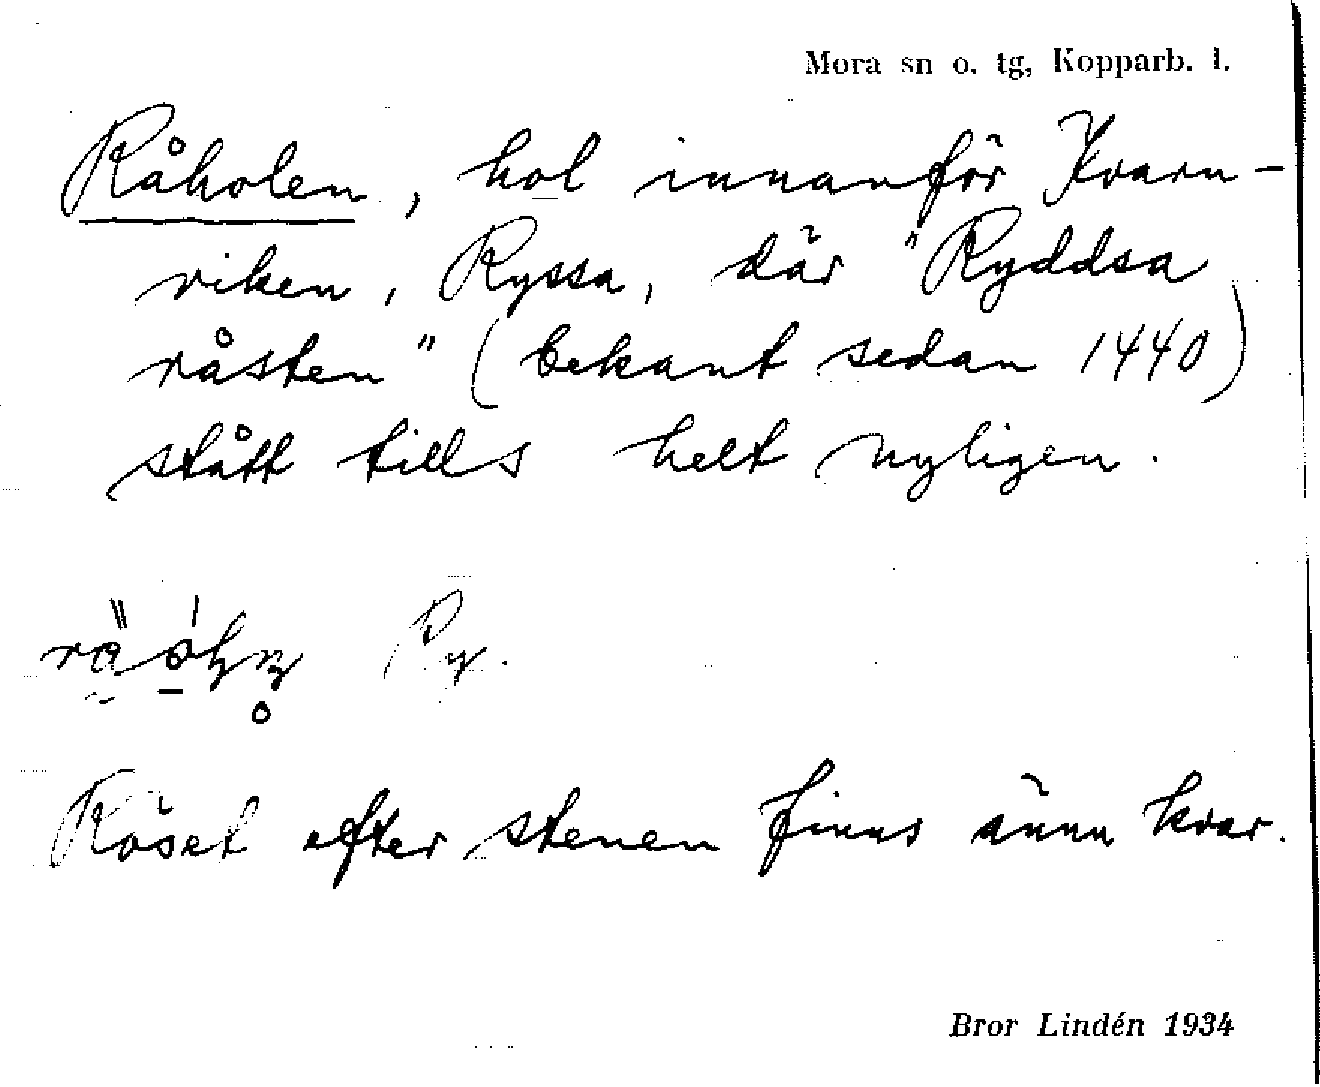 Mora sn o. tg, Kopparb. l.
Råholen, hol innanför Kvarn-
viken, Ryssa, där "Ryddsa
råsten" (bekant sedan 1440)
stått tills helt nyligen.
Ry.
Röset efter stenen finns ännu kvar.
Bror Lindén 1934